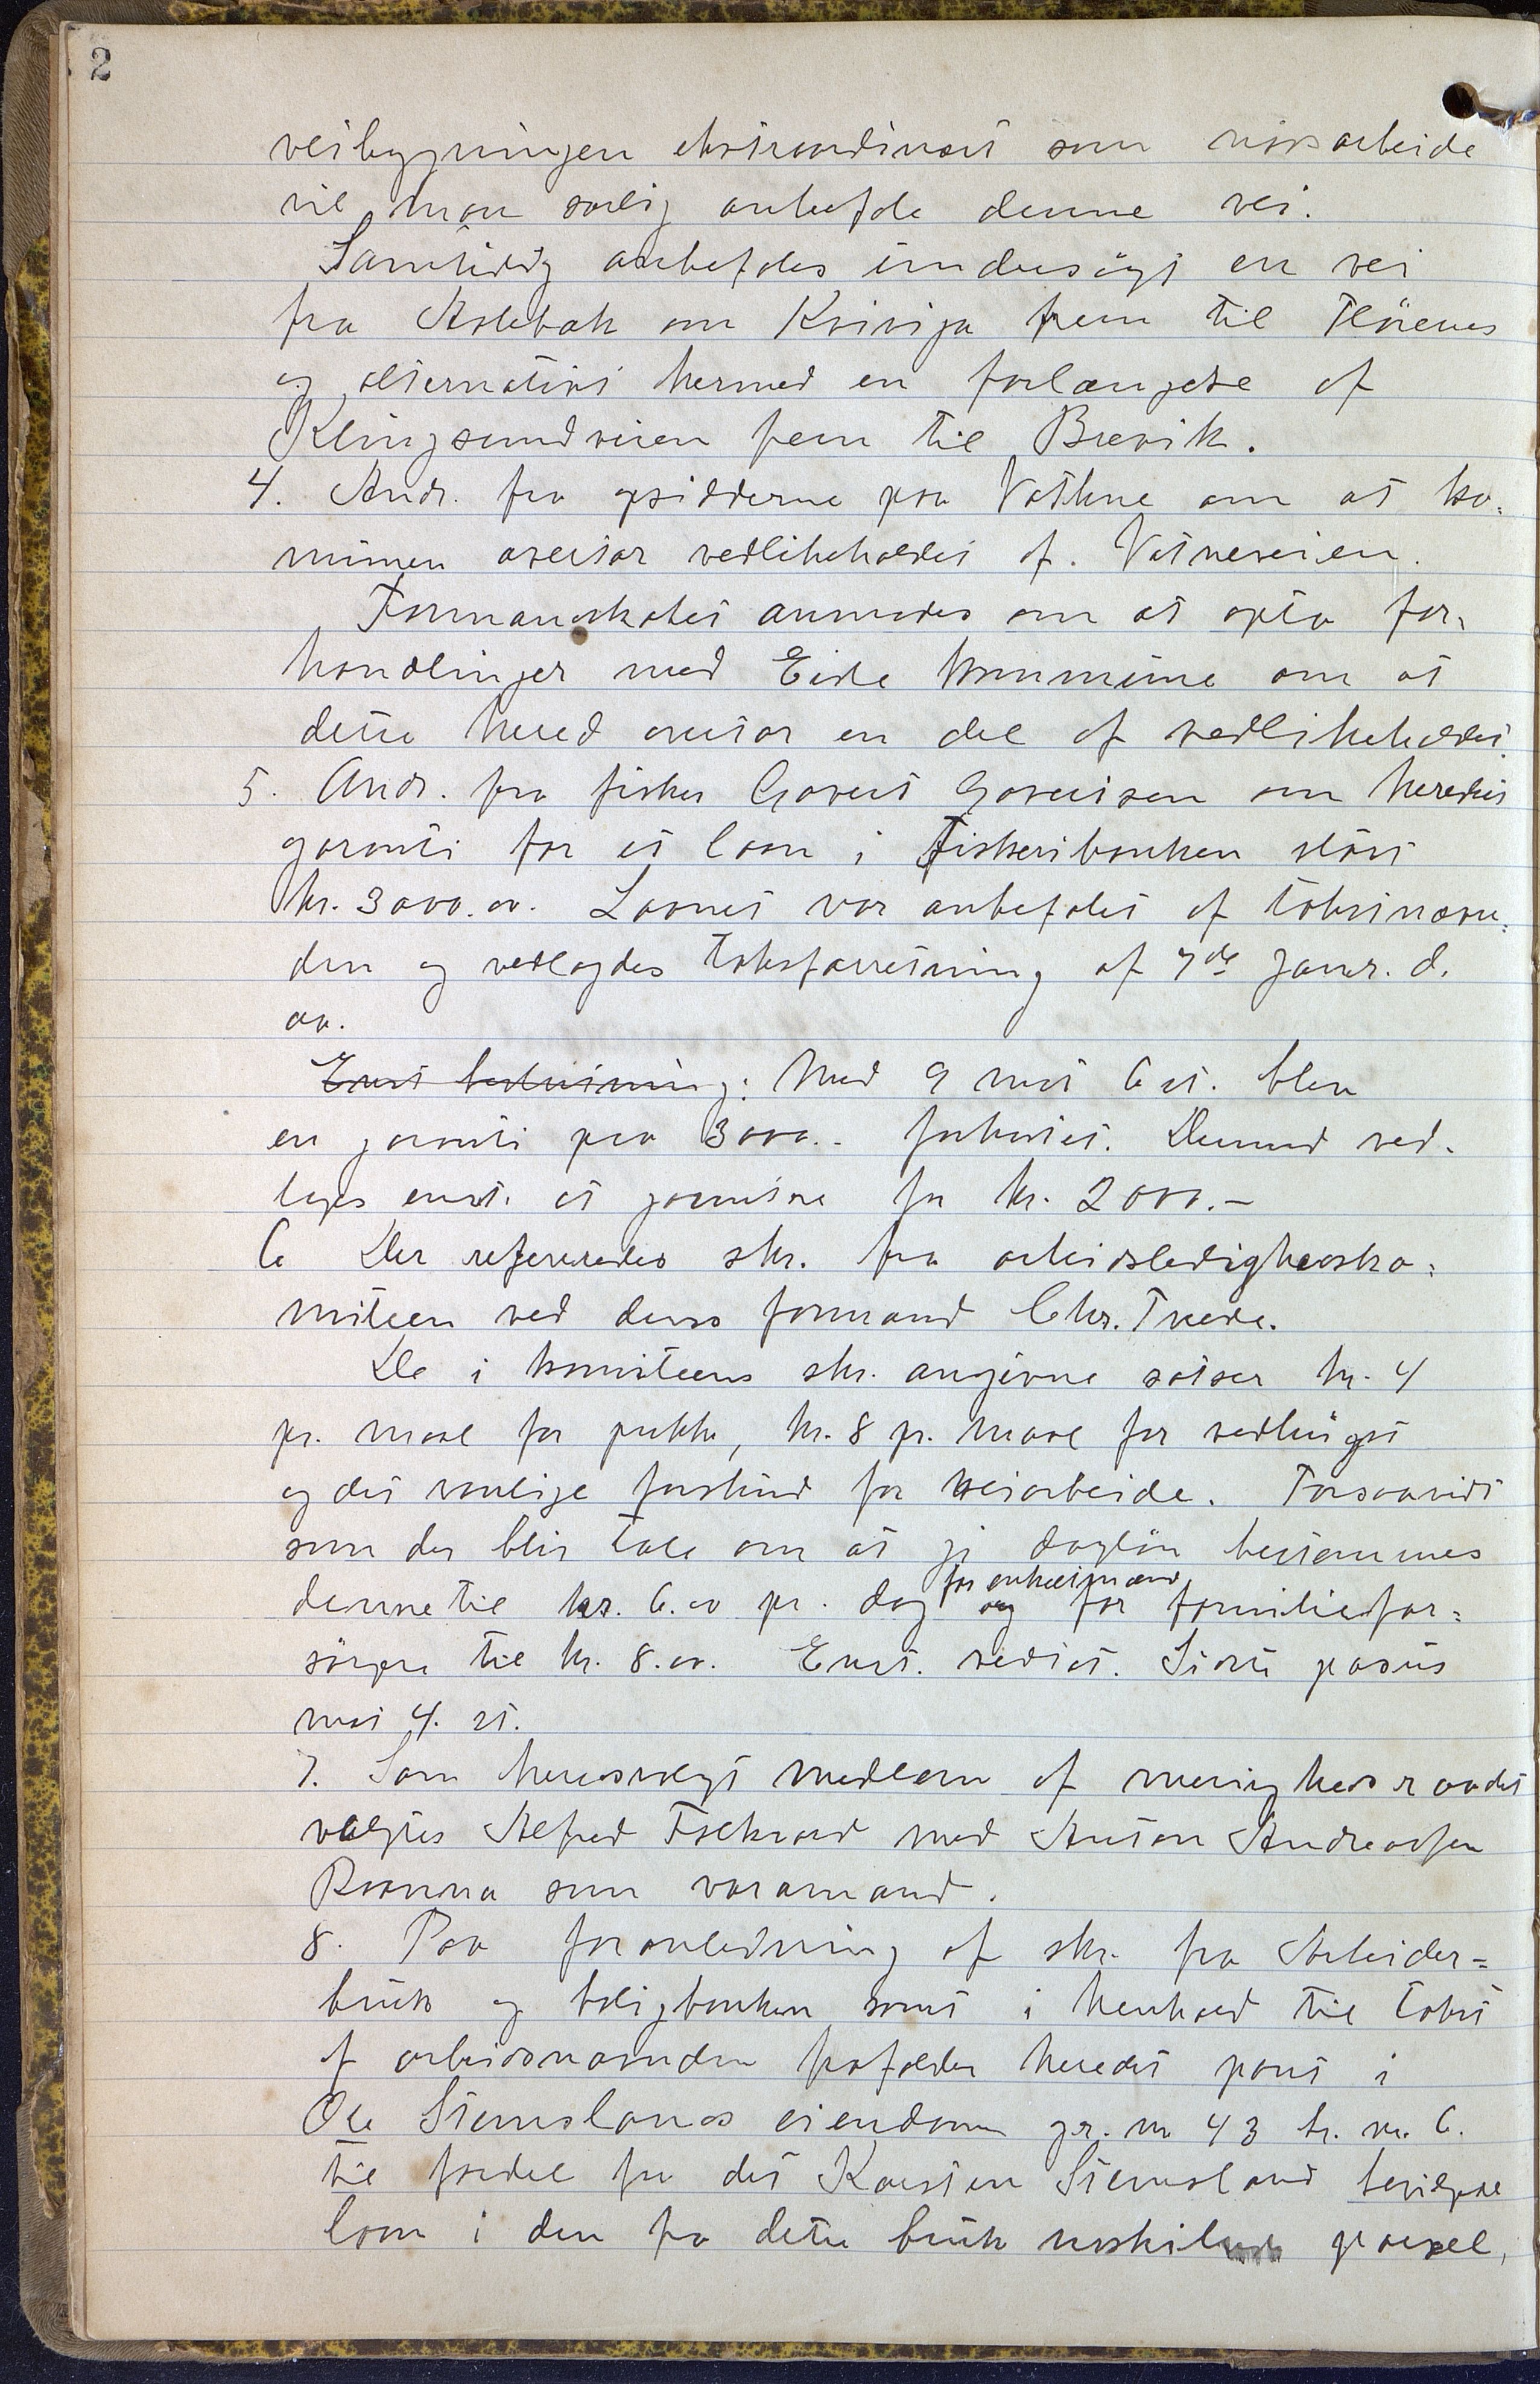 2
veibygningen ekstraordinært som nödsarbeide
vil man særlig anbefale denne vei.
Samtidig anbefales undersögt en vei
fra Aslebak om Kviviga frem til Flörenes
og alternativt hermed en forlængelse af
Klingsundveien frem til Brevik.
4. Andr. fra opsidderne paa Vathne om at ko-
munen overtar vedlikeholdet af Vatneveien.
Formandskabet anmodes om at opta for-
handlinger med Eide kommune om at
dette hered overtar en del af vedlikeholdet.
5. Andr. fra fisker Govert Govertsen om heredets
garanti for et laan i Fiskeribanken stort
kr. 3000.00. Laanet var anbefalet af takstnævn-
den og vedlagdes takstforretning af 7de januar d.
aa.
Enst. beslutning: Med 9 mot 6 st. blev
en garanti paa 3000.- forkastet. Derimod ved-
toges enst. at garantere for kr. 2000.-
6 Der refereredes skr. fra arbeidsledighedsko-
miteen ved dens formand Chr. Tvede.
De i komiteens skr. angivne satser kr. 4
pr. maal for pukk, kr. 8 pr. maal for vedhugst
og det vanlige forskud for veiarbeide. Forsaavidt
som der blir tale om at gi daglön bestemmes
denne til kr. 6.00 pr. dag for enkeltmænd og for familiefor-
sörgere til kr. 8.00. Enst. vedtat. Siste pasus
mot 4. st.
7. Som heredsvalgt medlem af menighedsraadet
valgtes Alfred Fælkvard med Anton Andreassen
Ramna som varamand.
8. Paa foranledning af skr. fra Arbeider-
bruk og boligbanken samt i henhold til takst
af arbeidsnævnden frafalder heredet pant i
Ole Stemslands eiendom gr. nr 43 br. nr. 6.
til fordel for det Karsten Stemsland bevilgede
laan i den fra dette bruk utskilte parsel,